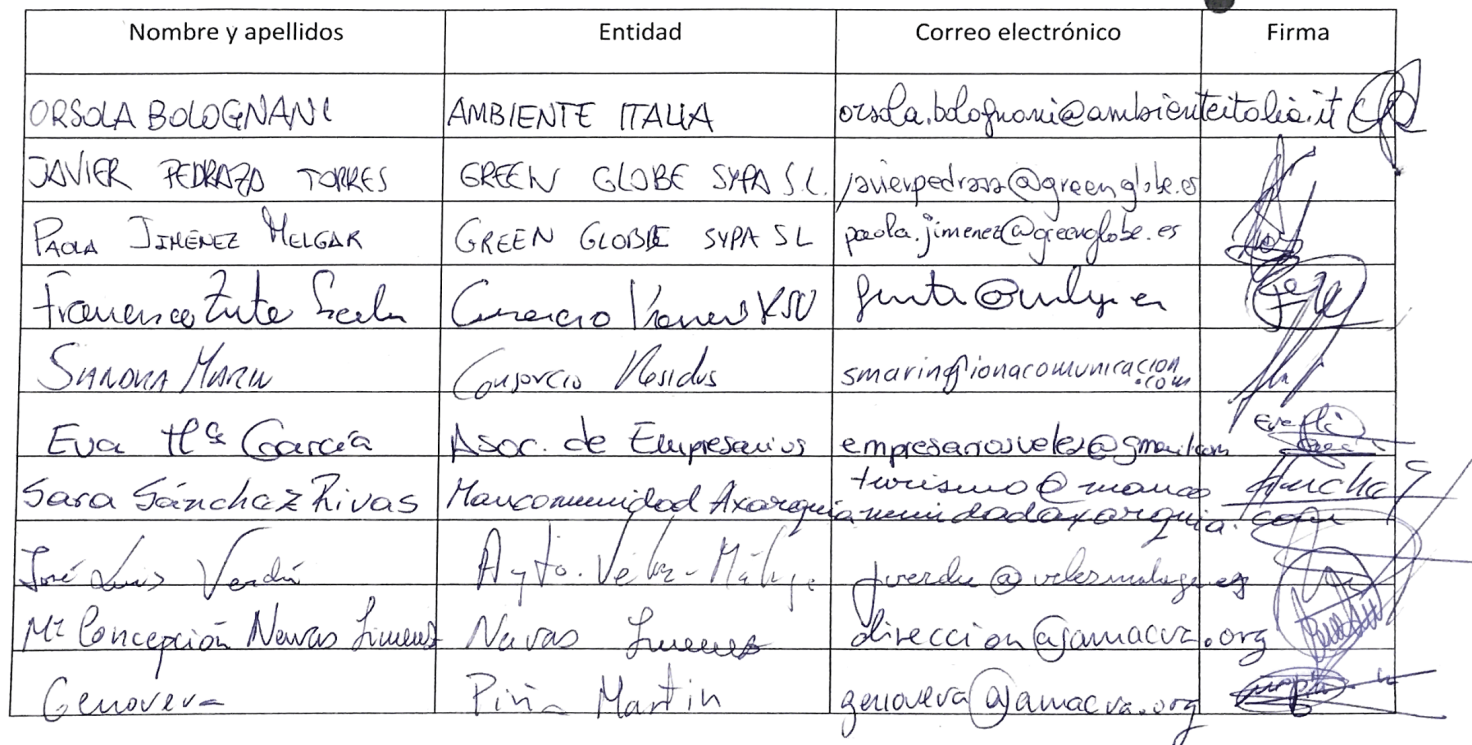 Nombre y apellidos Entidad Correo electrónico Firma
ORSOLA BOLOGNANI AMBIENTE ITALIA orsola.bolognani@ambienteitalia.it
JAVIER PEDRAZA TORRES GREEN GLOBE SYPA S.L. javierpedraza@greenglobe.es
PAOLA JIMENEZ MELGAR GREEN GLOBE SYPA SL paola.jimenez@greenglobe.es
Francisco
SANDRA MARIN Consorcio Residuos smarin@fionacomunicacion.com
Eva Mª García Asoc. de Empresarios empresariosvelez@gmail.com
Sara Sánchez Rivas Mancomunidad Axarquía turismo@manco
munidadaxarquia.com
José Luis Verdú Ayto. Vélez-Málaga jverdu@velezmalaga.es
Mª Concepción Navas Jimenez Navas Jimenez direccion@amacvz.org
Genoveva Piña Martin genoveva@amacvz.org